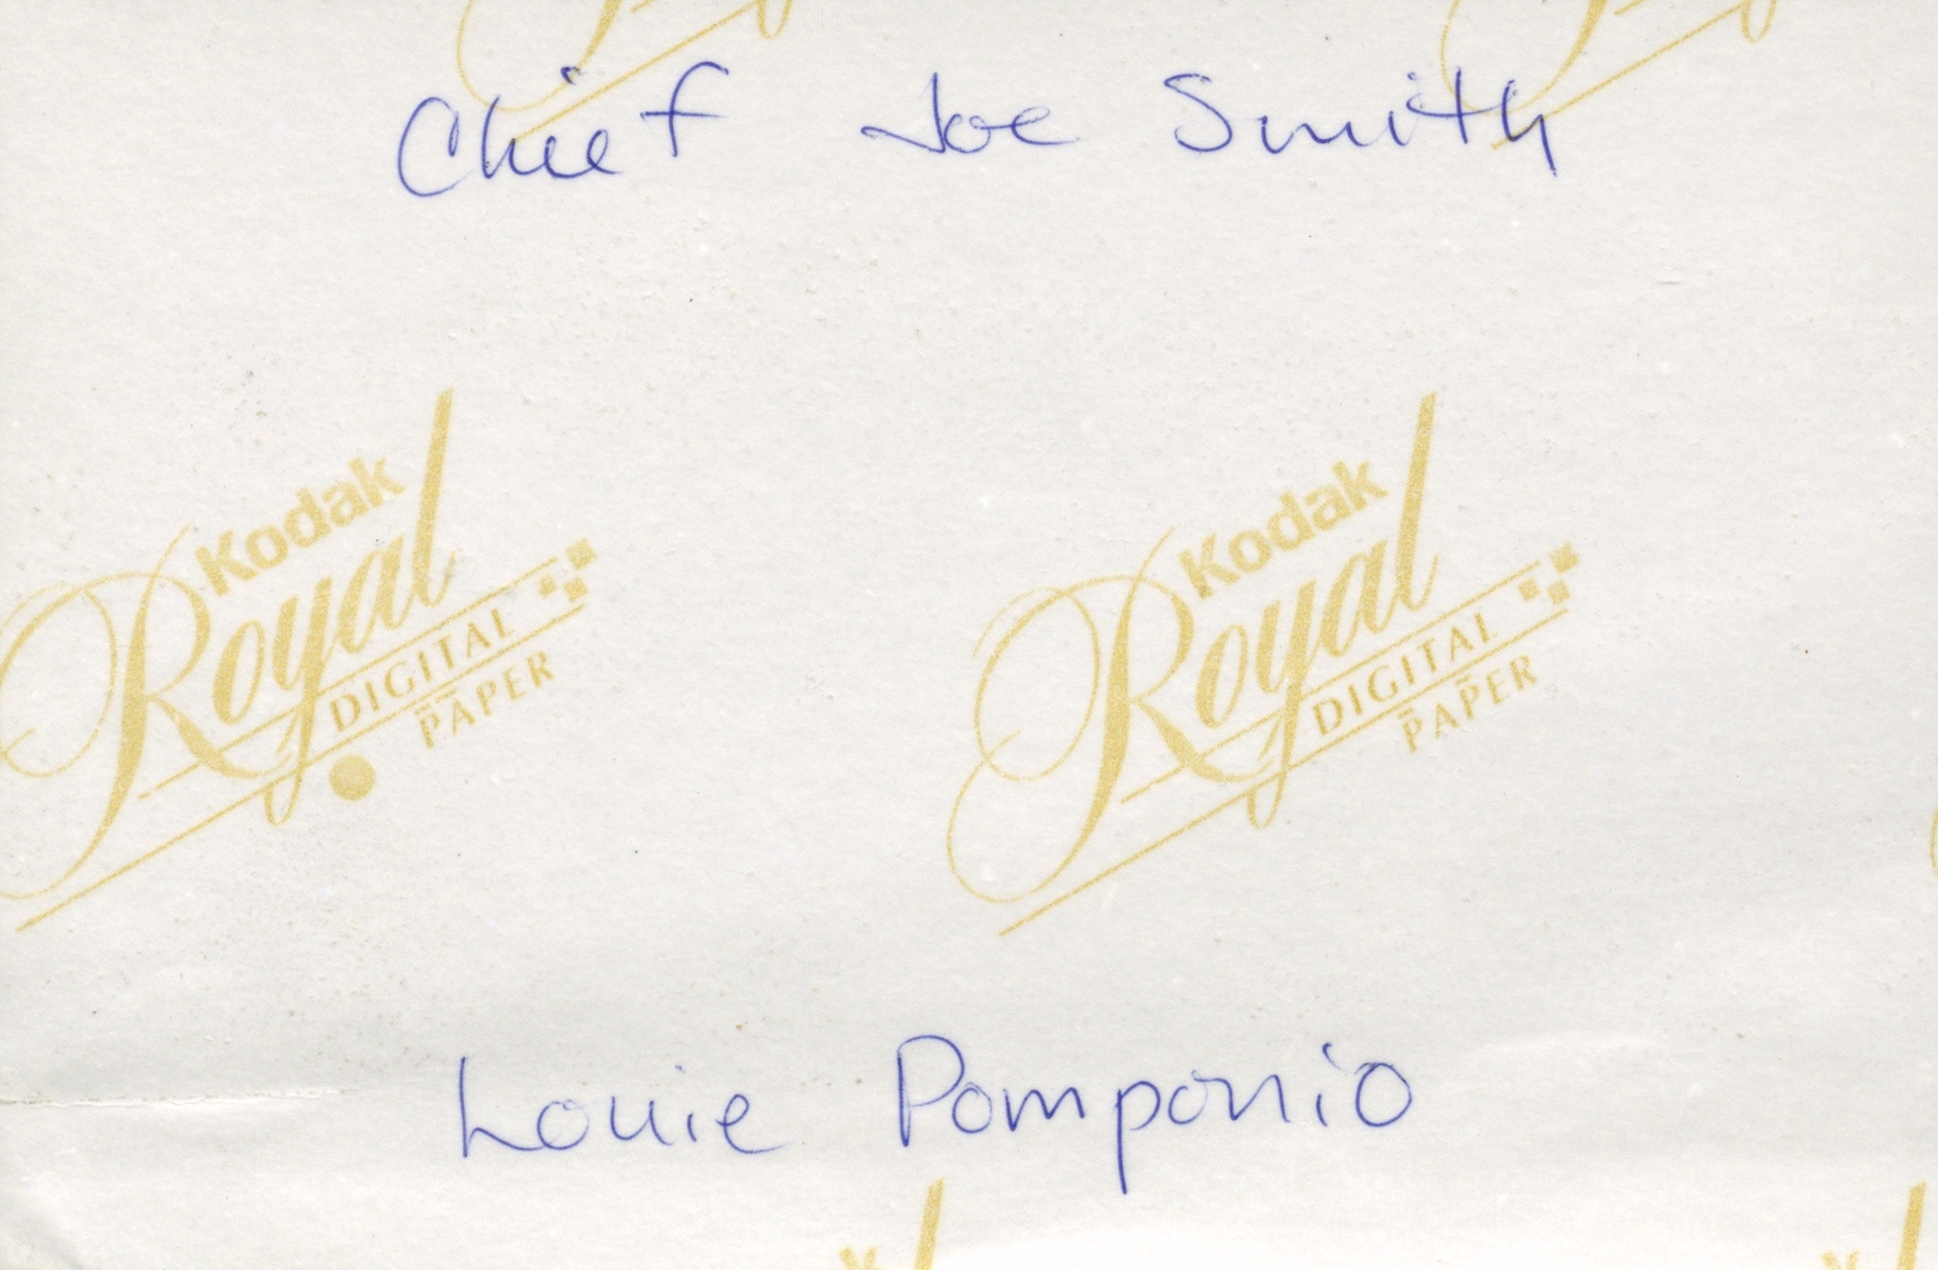 Chief Joe Smith
Kodak
Royal
DIGITAL
PAPER
Kodak
Royal
DIGITAL
PAPER
Louie Pomponio